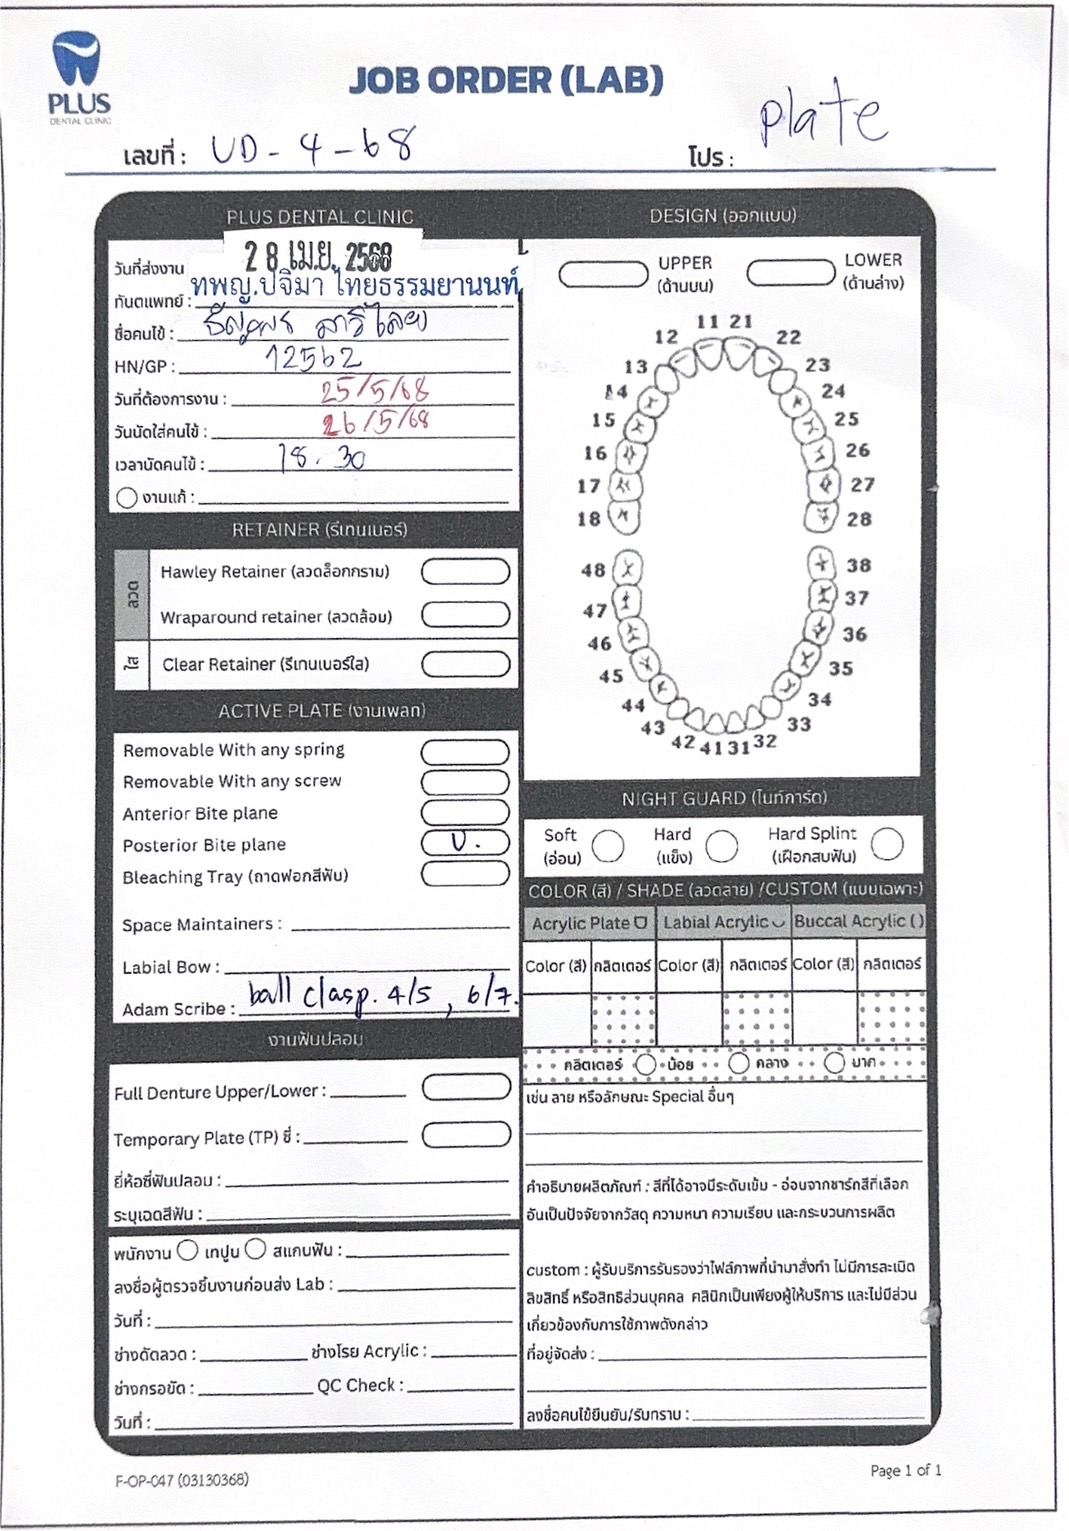 PLUS
DENTAL CLINIC
JOB ORDER (LAB)
เลขที่ : UD - 4 - 68
โปร : plate
PLUS DENTAL CLINIC
วันที่ส่งงาน 28 เม.ย. 2568
ทันตแพทย์ : ทพญ.ปัจิมา ไทยธรรมยานนท์
ชื่อคนไข้ :
HN/GP : 12562
วันที่ต้องการงาน : 25/5/68
วันนัดใส่คนไข้ : 26/5/68
เวลานัดคนไข้ : 18.30
งานแก้ :
RETAINER (รีเทนเนอร์)
ลวด
Hawley Retainer (ลวดล็อกกราม)
Wraparound retainer (ลวดล้อม)
ใส
Clear Retainer (รีเทนเนอร์ใส)
ACTIVE PLATE (งานเพลท)
Removable With any spring
Removable With any screw
Anterior Bite plane
Posterior Bite plane U.
Bleaching Tray (ถาดฟอกสีฟัน)
Space Maintainers :
Labial Bow :
Adam Scribe : ball clasp. 4/5 , 6/7.
งานฟันปลอม
Full Denture Upper/Lower :
Temporary Plate (TP) ซี่ :
ยี่ห้อซี่ฟันปลอม :
ระบุเฉดสีฟัน :
พนักงาน เทปูน สแกนฟัน :
ลงชื่อผู้ตรวจชิ้นงานก่อนส่ง Lab :
วันที่ :
ช่างดัดลวด : ช่างโรย Acrylic :
ช่างกรอขัด : QC Check :
วันที่ :
DESIGN (ออกแบบ)
UPPER
(ด้านบน)
LOWER
(ด้านล่าง)
11 21
12 22
13 23
14 24
15 25
16 26
17 27
18 28
48 38
47 37
46 36
45 35
44 34
43 33
42 41 31 32
NIGHT GUARD (ไนท์การ์ด)
Soft
(อ่อน)
Hard
(แข็ง)
Hard Splint
(เฝือกสบฟัน)
COLOR (สี) / SHADE (ลวดลาย) /CUSTOM (แบบเฉพาะ)
Acrylic Plate Labial Acrylic Buccal Acrylic ( )
Color (สี) กลิตเตอร์ Color (สี) กลิตเตอร์ Color (สี) กลิตเตอร์
กลิตเตอร์ น้อย กลาง มาก
เช่น ลาย หรือลักษณะ Special อื่นๆ
คำอธิบายผลิตภัณฑ์ : สีที่ได้อาจมีระดับเข้ม - อ่อนจากชาร์ทสีที่เลือก
อันเป็นปัจจัยจากวัสดุ ความหนา ความเรียบ และกระบวนการผลิต
custom : ผู้รับบริการรับรองว่าไฟล์ภาพที่นำมาสั่งทำ ไม่มีการละเมิด
ลิขสิทธิ์ หรือสิทธิส่วนบุคคล คลินิกเป็นเพียงผู้ให้บริการ และไม่มีส่วน
เกี่ยวข้องกับการใช้ภาพดังกล่าว
ที่อยู่จัดส่ง :
ลงชื่อคนไข้ยืนยัน/รับทราบ :
F-OP-047 (03130368)
Page 1 of 1